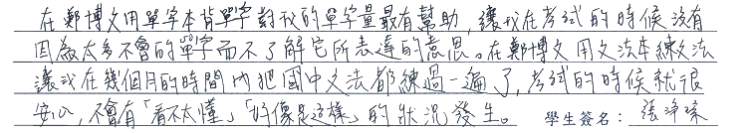 在鄭博文用單字本背單字對我的單字量最有幫助，讓我在考試的時候沒有
因為太多不會的單字而不了解它所表達的意思。在鄭博文用文法本練文法
讓我在幾個月的時間內把國中文法都練過一遍了，考試的時候就很
安心，不會有「看不太懂」「好像是這樣」的狀況發生。 學生簽名：張淨